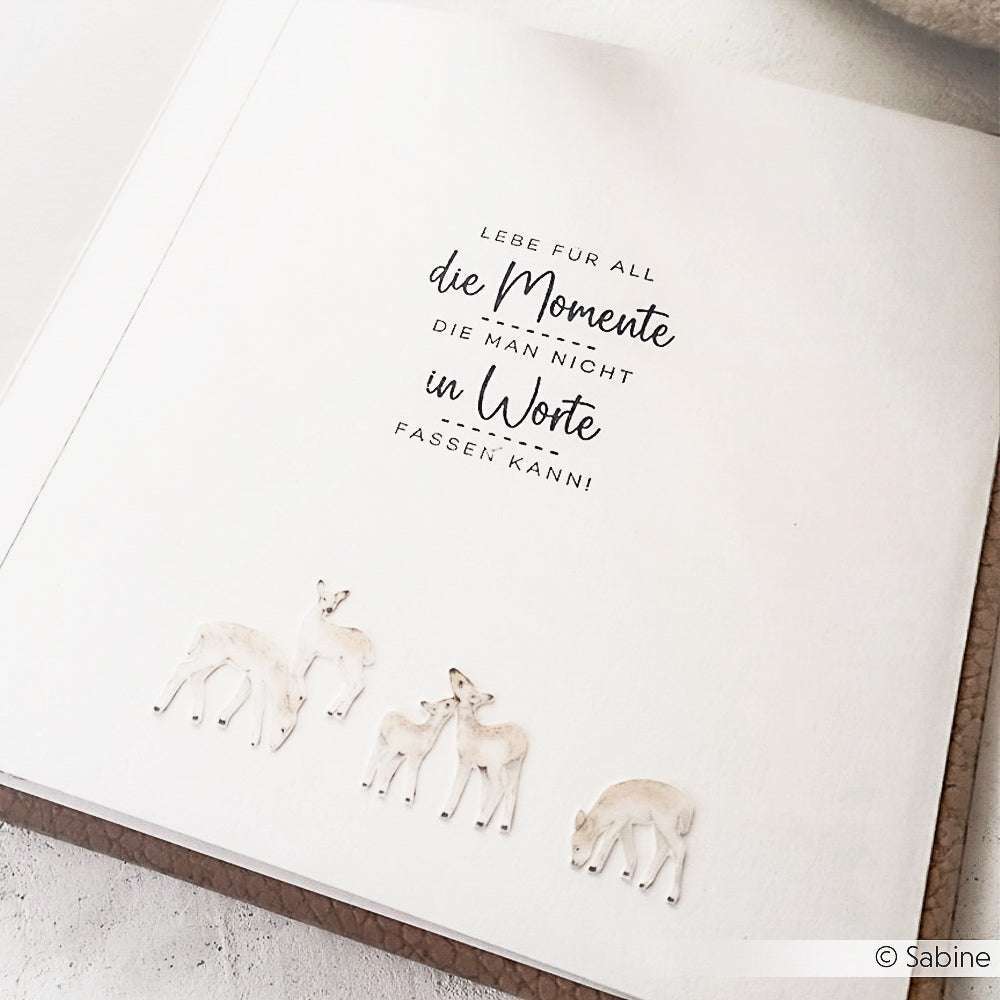 LEBE FÜR ALL
die Momente
DIE MAN NICHT
in Worte
FASSEN KANN!
© Sabine